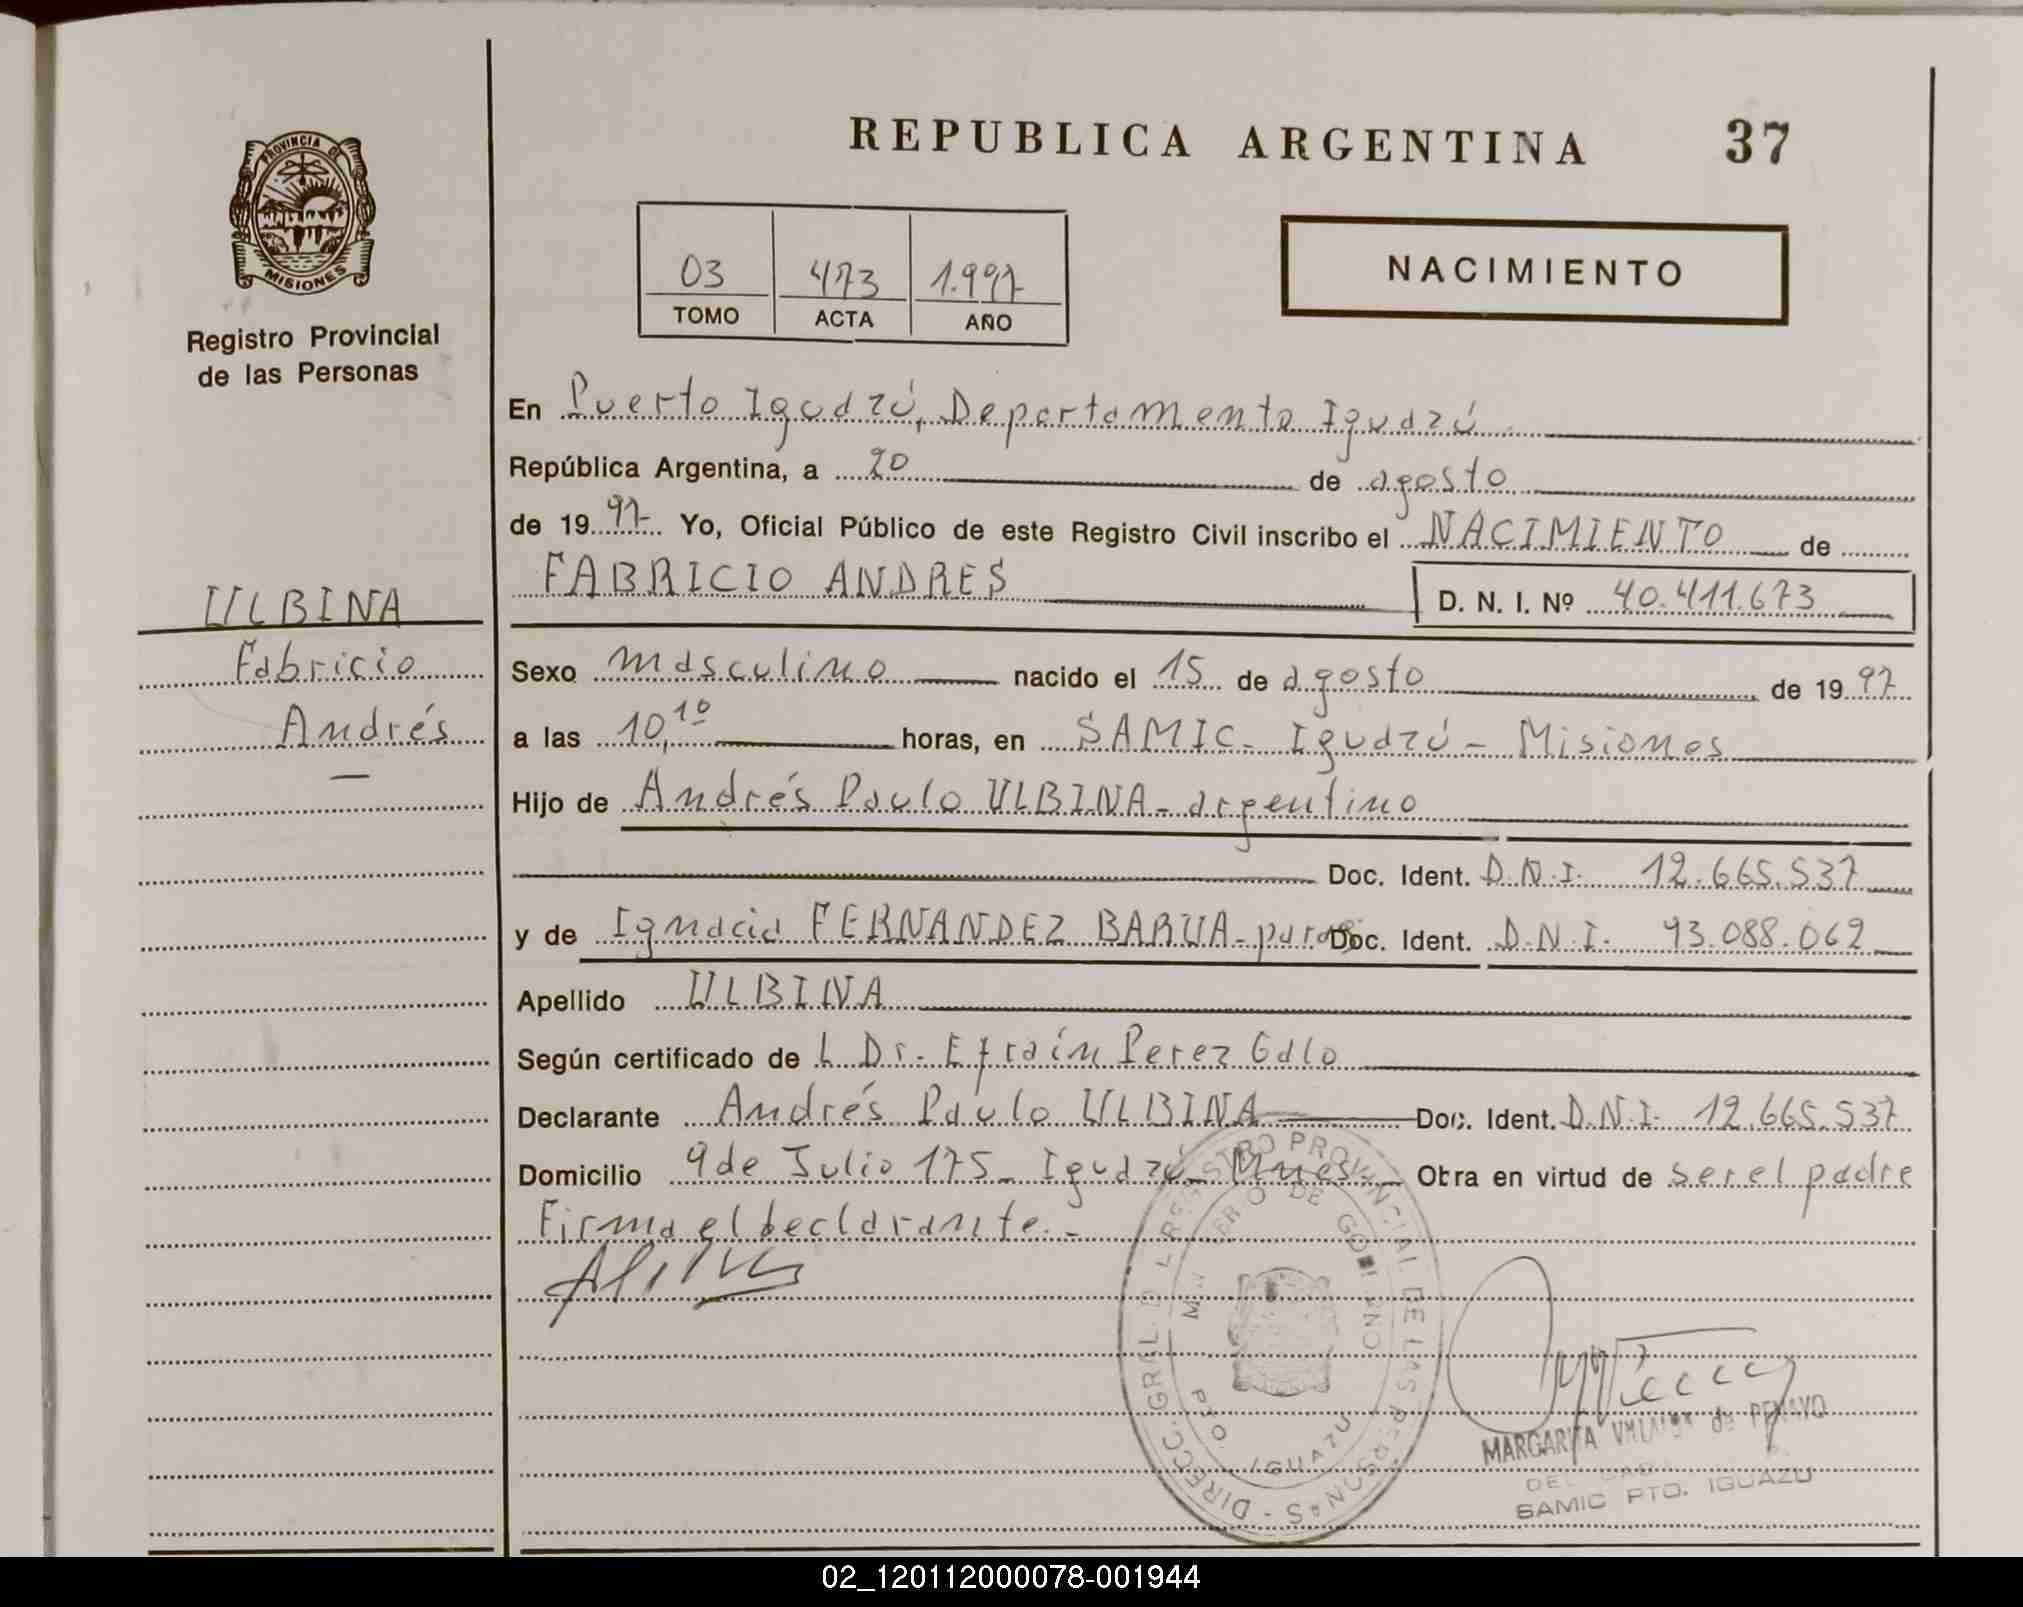 REPUBLICA ARGENTINA 37
PROVINCIA DE
MISIONES
Registro Provincial
de las Personas
03 473 1.997
TOMO ACTA AÑO
NACIMIENTO
En Puerto Iguazú, Departamento Iguazú
República Argentina, a 20 de agosto
de 19 97 Yo, Oficial Público de este Registro Civil inscribo el NACIMIENTO de
FABRICIO ANDRES D. N. I. Nº 40.411.673
ULBINA
Fabricio
Andrés
Sexo masculino nacido el 15 de agosto de 19 97
a las 10,10 horas, en SAMIC - Iguazú - Misiones
Hijo de Andrés Paulo ULBINA - argentino
Doc. Ident. D.N.I. 12.665.537
y de Ignacia FERNANDEZ BARUA - Doc. Ident. D.N.I. 93.088.062
Apellido ULBINA
Según certificado de L Dr. Efraín Perez Galo
Declarante Andrés Paulo ULBINA Doc. Ident. D.N.I. 12.665.537
Domicilio 9 de Julio 175 - Iguazú - Mnes - Obra en virtud de ser el padre
Firma el declarante. -
DIRECC. GRAL. DEL REGISTRO PROVINCIAL DE LAS PERSONAS
MINISTERIO DE GOBIERNO
PTO. IGUAZU
MARGARITA de PENAYO
SAMIC PTO. IGUAZU
02_120112000078-001944